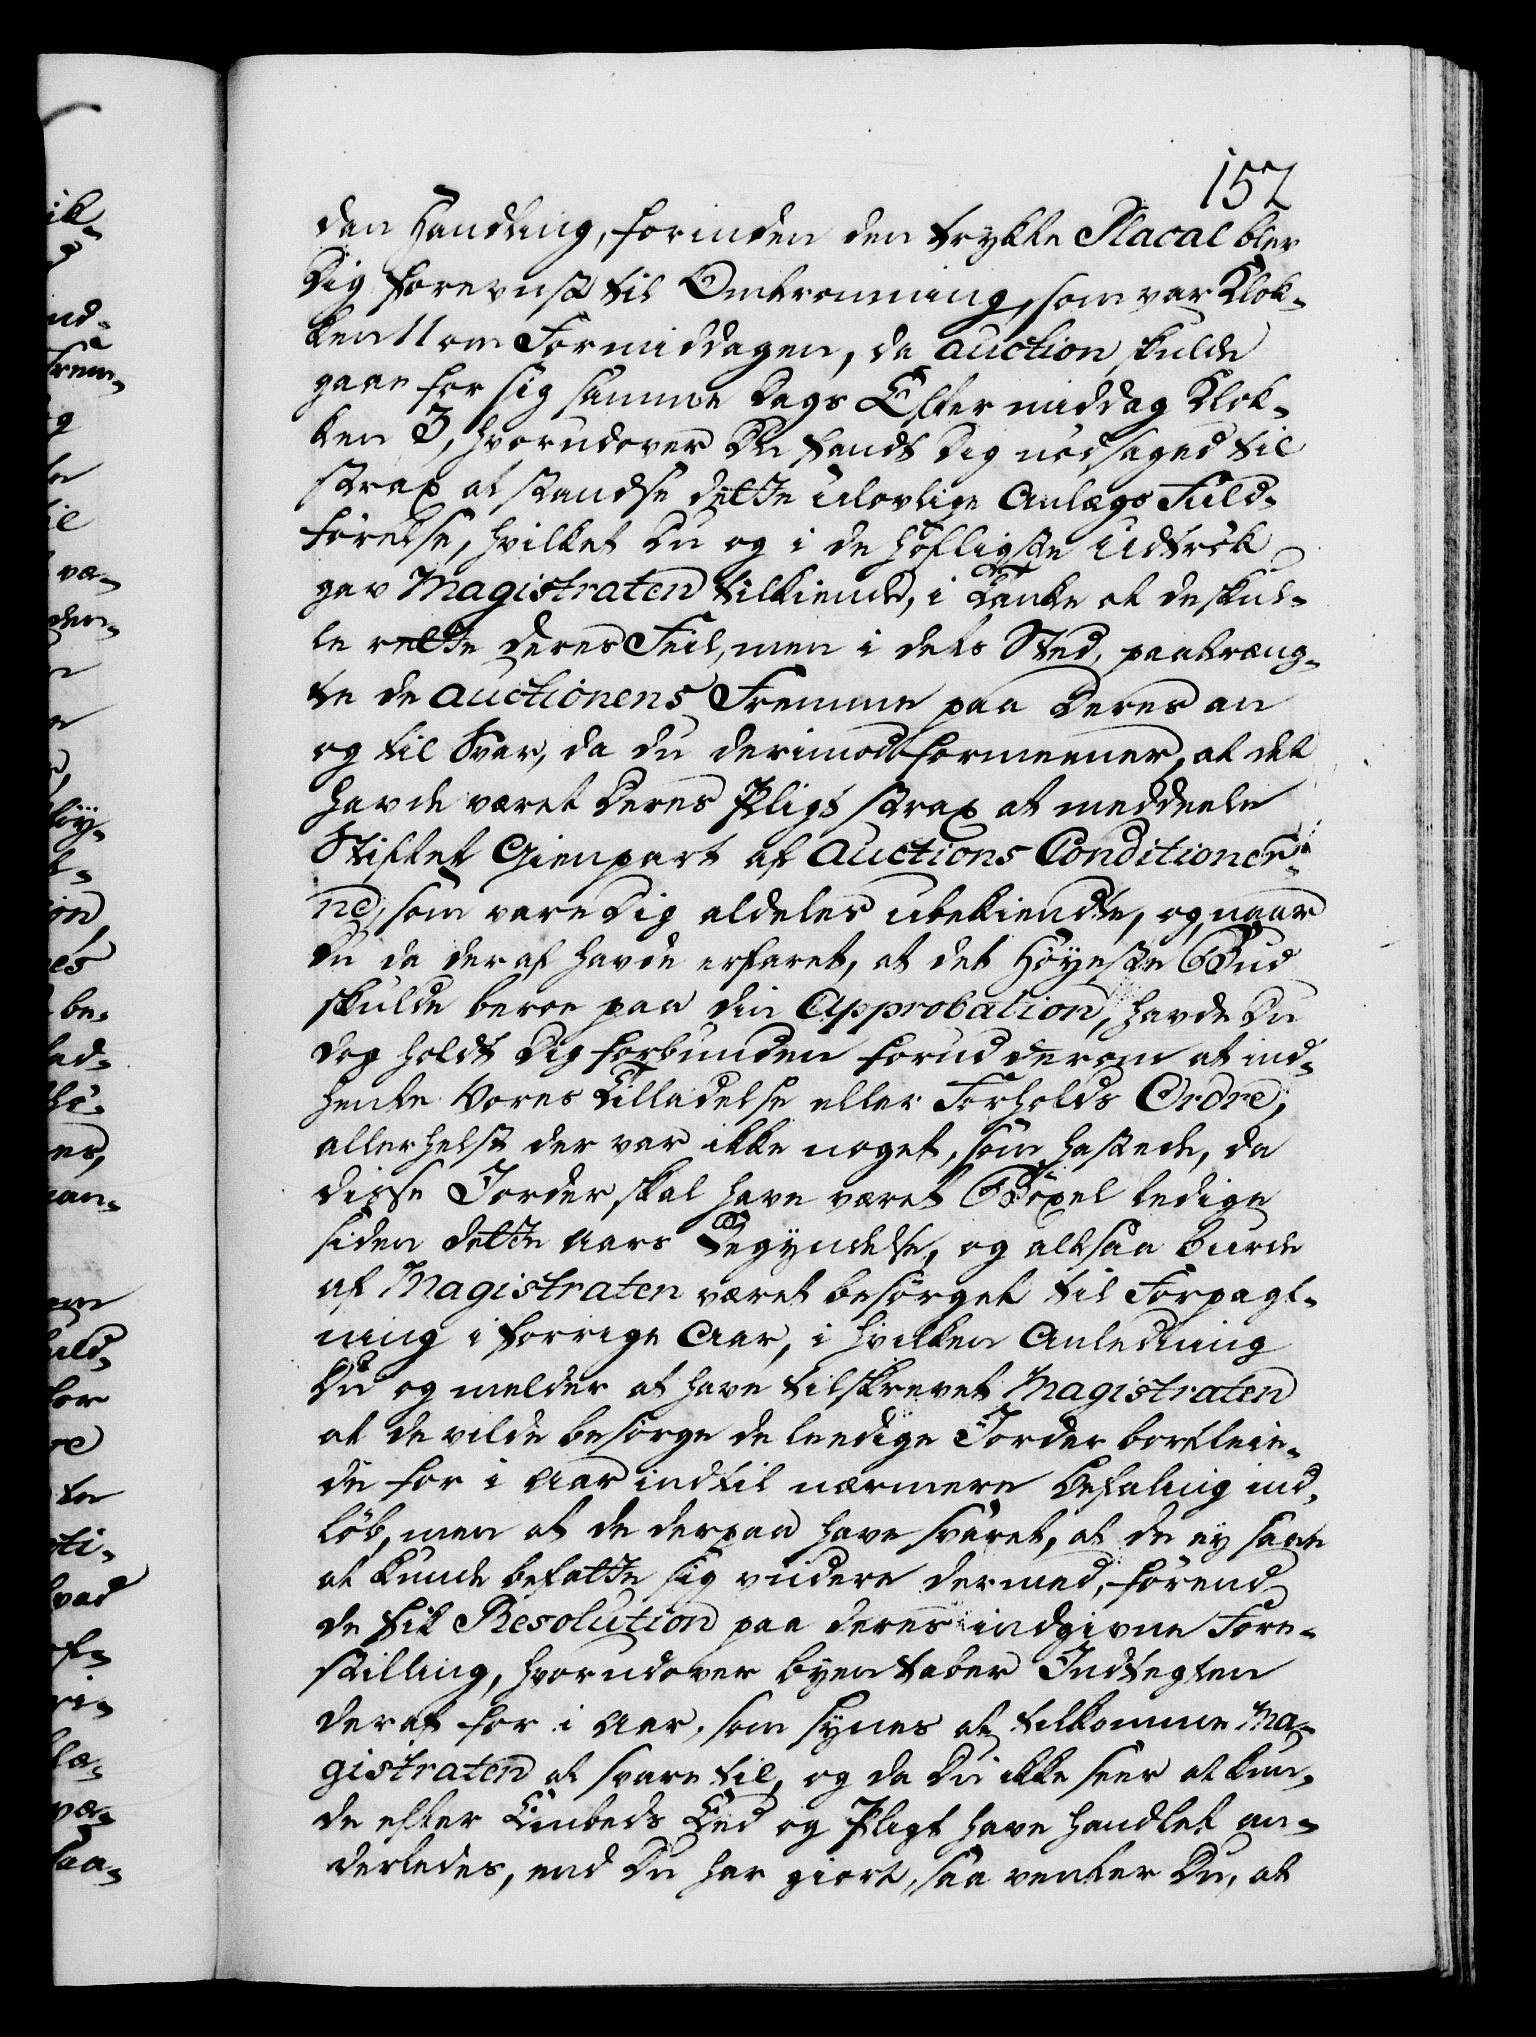 157
den Handling, forinden den trykte Placat blev
Dig foreviist til Omtromning, som var Klok-
ken 11 om Formiddagen, da Auction skulde
gaae for sig samme Dags Eftermiddag Klok-
ken 3, hvorudover Du fandt Dig nødsaged til
strax at standse dette ulovlige Anlægs Fuld-
førelse, hvilket Du og i de høfligste Udtrøk
gav Magistraten tilkiende, i Tanke at de skul-
le rette deres Feil, men i dets Sted, paatræng-
te de Auctionens Fremme paa deres an
og til Svar, da du derimod formeener, at det
havde været deres Pligt strax at meddeele
Stiftet Gienpart af Auctions Conditioner-
ne, som vare Dig aldeles ubekiendte, og naar
Du da deraf havde erfaret, at det høyeste Bud
skulde beroe paa din Approbation, havde Du
dog holdt Dig forbunden forud derom at ind-
hente Vores Tilladelse eller Forholds Ordre,
allerhelst der var ikke noget, som hastede, da
disse Jorder skal have været Böxel ledige
siden dette Aars Begyndelse, og altsaa burde
af Magistraten været besørget til Forpagt-
ning i forrige Aar, i hvilken Anledning
Du og melder at have tilskrevet Magistraten
at de vilde besørge de leedige Jorder bortleie-
de for i Aar indtil nærmere Befaling ind-
løb, men at de derpaa have svaret, at de ey saae
at kunde befatte sig viidere dermed, førend
de fik Resolution paa deres indgivne Fore-
stilling, hvorudover Byen taber Indtegten
deraf for i Aar, som synes at tilkomme Ma-
gistraten at svare til, og da Du ikke seer at kun-
de efter Embeds Eed og Pligt have handlet an-
derledes, end Du har giort, saa venter Du, at